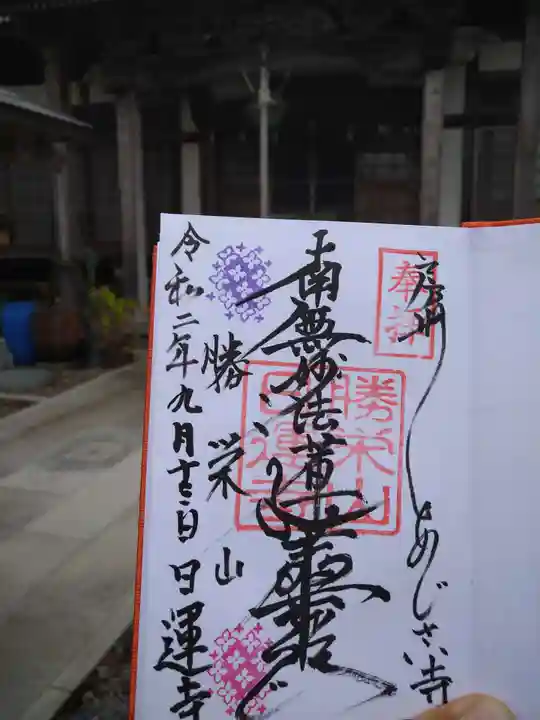 奉拝
房州 あじさい寺
南無妙法蓮華経
勝栄山
日運寺
勝栄山
令和二年九月十三日 日運寺